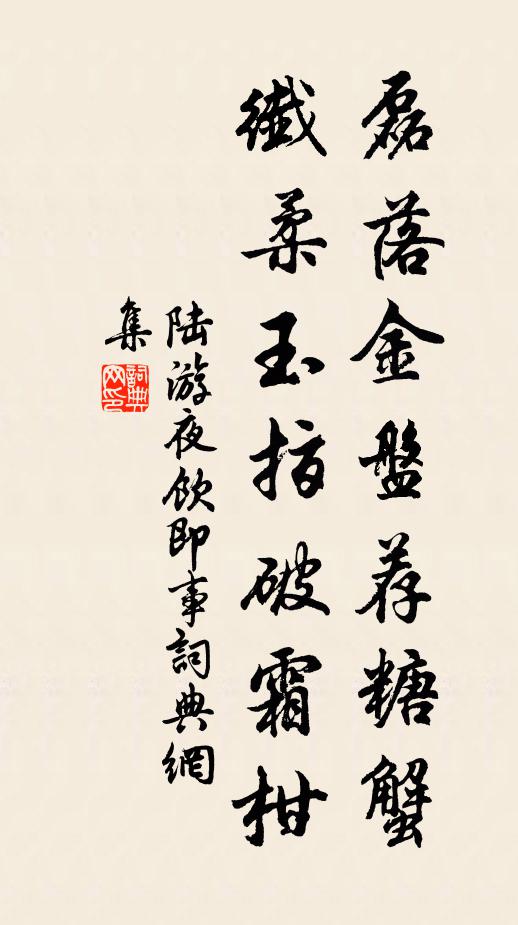 磊落金盤荐糖蟹
纖柔玉指破霜柑
陆游夜飲即事詞典網
集
詞典
网印